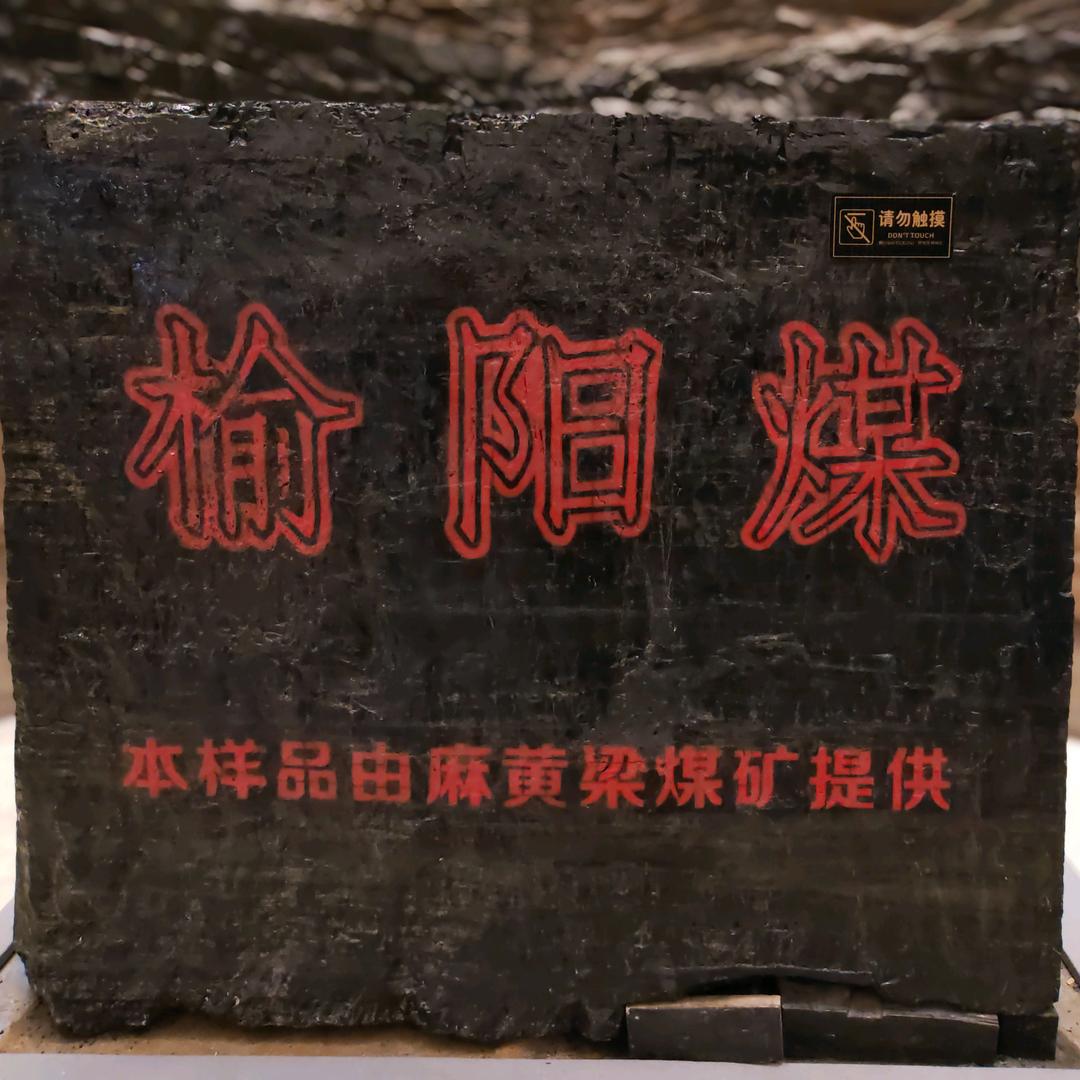 请勿触摸
DON'T TOUCH
榆阳煤
本样品由麻黄梁煤矿提供